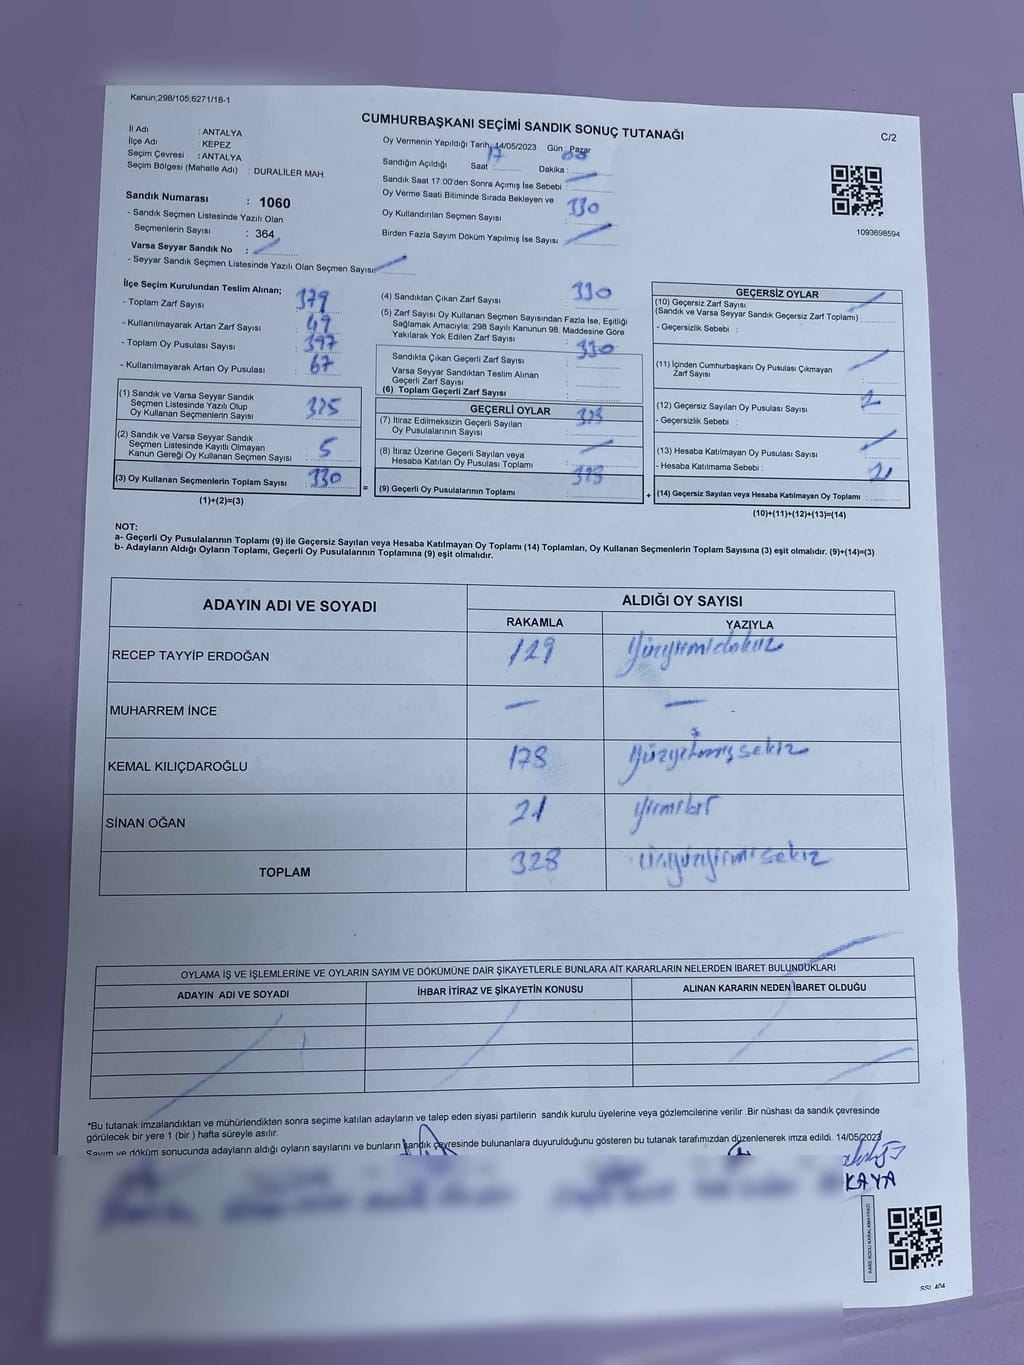 Kanun;298/105;6271/18-1
CUMHURBAŞKANI SEÇİMİ SANDIK SONUÇ TUTANAĞI
C/2
İl Adı : ANTALYA
İlçe Adı : KEPEZ
Seçim Çevresi : ANTALYA
Seçim Bölgesi (Mahalle Adı) : DURALİLER MAH.
Sandık Numarası : 1060
- Sandık Seçmen Listesinde Yazılı Olan
Seçmenlerin Sayısı : 364
Varsa Seyyar Sandık No :
- Seyyar Sandık Seçmen Listesinde Yazılı Olan Seçmen Sayısı:
Oy Vermenin Yapıldığı Tarih 14/05/2023 Gün Pazar
Sandığın Açıldığı Saat 17 Dakika : 00
Sandık Saat 17:00'den Sonra Açımış İse Sebebi :
Oy Verme Saati Bitiminde Sırada Bekleyen ve
Oy Kullandırılan Seçmen Sayısı : 330
Birden Fazla Sayım Döküm Yapılmış İse Sayısı :
1093698594
İlçe Seçim Kurulundan Teslim Alınan;
- Toplam Zarf Sayısı : 379
- Kullanılmayarak Artan Zarf Sayısı : 49
- Toplam Oy Pusulası Sayısı : 397
- Kullanılmayarak Artan Oy Pusulası : 67
(1) Sandık ve Varsa Seyyar Sandık
Seçmen Listesinde Yazılı Olup
Oy Kullanan Seçmenlerin Sayısı : 325
(2) Sandık ve Varsa Seyyar Sandık
Seçmen Listesinde Kayıtlı Olmayan
Kanun Gereği Oy Kullanan Seçmen Sayısı : 5
(3) Oy Kullanan Seçmenlerin Toplam Sayısı : 330
(1)+(2)=(3)
=
(4) Sandıktan Çıkan Zarf Sayısı : 330
(5) Zarf Sayısı Oy Kullanan Seçmen Sayısından Fazla İse, Eşitliği
Sağlamak Amacıyla; 298 Sayılı Kanunun 98. Maddesine Göre
Yakılarak Yok Edilen Zarf Sayısı :
Sandıkta Çıkan Geçerli Zarf Sayısı : 330
Varsa Seyyar Sandıktan Teslim Alınan
Geçerli Zarf Sayısı :
(6) Toplam Geçerli Zarf Sayısı :
GEÇERLİ OYLAR
(7) İtiraz Edilmeksizin Geçerli Sayılan
Oy Pusulalarının Sayısı : 328
(8) İtiraz Üzerine Geçerli Sayılan veya
Hesaba Katılan Oy Pusulası Toplamı :
(9) Geçerli Oy Pusulalarının Toplamı : 328
+
GEÇERSİZ OYLAR
(10) Geçersiz Zarf Sayısı
(Sandık ve Varsa Seyyar Sandık Geçersiz Zarf Toplamı) :
- Geçersizlik Sebebi :
(11) İçinden Cumhurbaşkanı Oy Pusulası Çıkmayan
Zarf Sayısı :
(12) Geçersiz Sayılan Oy Pusulası Sayısı : 2
- Geçersizlik Sebebi :
(13) Hesaba Katılmayan Oy Pusulası Sayısı :
- Hesaba Katılmama Sebebi :
(14) Geçersiz Sayılan veya Hesaba Katılmayan Oy Toplamı : 2
(10)+(11)+(12)+(13)=(14)
NOT:
a- Geçerli Oy Pusulasının Toplamı (9) ile Geçersiz Sayılan veya Hesaba Katılmayan Oy Toplamı (14) Toplamları, Oy Kullanan Seçmenlerin Toplam Sayısına (3) eşit olmalıdır. (9)+(14)=(3)
b- Adayların Aldığı Oyların Toplamı, Geçerli Oy Pusulalarının Toplamına (9) eşit olmalıdır.
ADAYIN ADI VE SOYADI ALDIĞI OY SAYISI
RAKAMLA YAZIYLA
RECEP TAYYİP ERDOĞAN 129 Yüzyirmidokuz
MUHARREM İNCE — —
KEMAL KILIÇDAROĞLU 178 Yüzyetmişsekiz
SİNAN OĞAN 21 Yirmibir
TOPLAM 328 Üçyüzyirmisekiz
OYLAMA İŞ VE İŞLEMLERİNE VE OYLARIN SAYIM VE DÖKÜMÜNE DAİR ŞİKAYETLERLE BUNLARA AİT KARARLARIN NELERDEN İBARET BULUNDUKLARI
ADAYIN ADI VE SOYADI İHBAR İTİRAZ VE ŞİKAYETİN KONUSU ALINAN KARARIN NEDEN İBARET OLDUĞU
*Bu tutanak imzalandıktan ve mühürlendikten sonra seçime katılan adayların ve talep eden siyasi partilerin sandık kurulu üyelerine veya gözlemcilerine verilir .Bir nüshası da sandık çevresinde
görülecek bir yere 1 (bir ) hafta süreyle asılır.
Sayım ve döküm sonucunda adayların aldığı oyların sayılarını ve bunların sandık çevresinde bulunanlara duyurulduğunu gösteren bu tutanak tarafımızdan düzenlenerek imza edildi. 14/05/2023
KAYA
KARE KODU KARALAMAYINIZ!